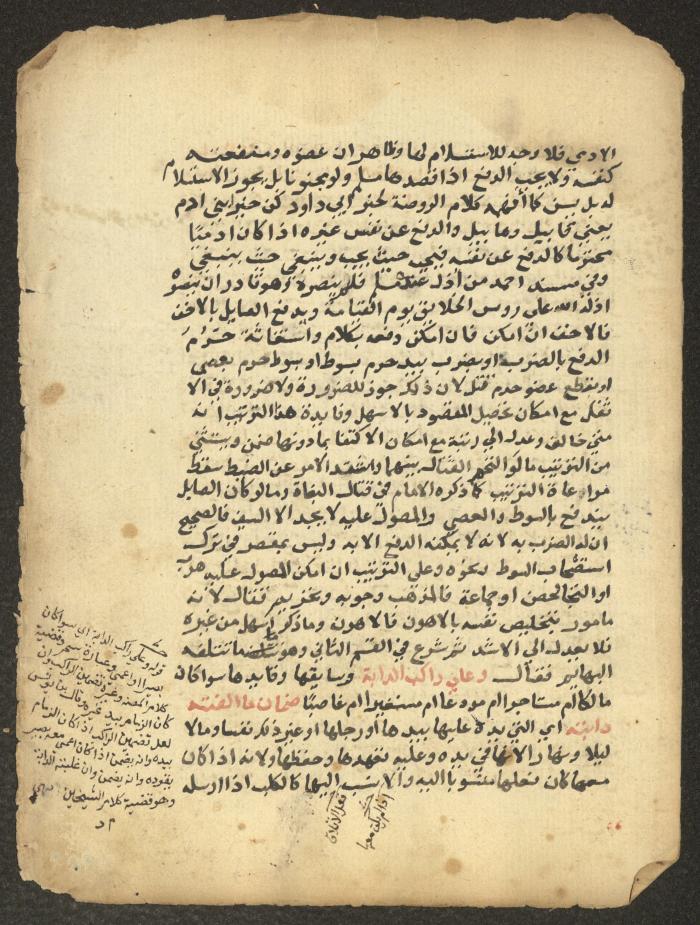 الادمي فلا وجه للاستسلام لها وظاهر ان عضوه ومنفعته
كنفسه ولا يجب الدفع اذا قصدها مسلم ولو مجنونا بل يجوز الاستسلام
له بل يسن كما أفهمه كلام الروضة لخبر ابي داود كن خير ابني ادم
يعني قابيل وهابيل والدفع عن نفس غيره اذا كان ادميا
محترما كالدفع عن نفسه فيجب حيث يجب وينتفي حيث ينتفي
وفي مسند احمد من اذل عنده مسلم فلم ينصره وهو قادر ان ينصره
اذله الله على روس الخلايق يوم القيامة ويدفع الصايل بالاخف
فالاخف ان امكن فان امكن دفعه بكلام واستغاثة حرم
الدفع بالضرب او بضرب بيد حرم بسوط او بسوط حرم بعصي
او بقطع عضو حرم قتل لان ذلك جوز للضرورة ولا ضرورة في الا
ثقل مع امكان تحصيل المقصود بالاسهل وفايدة هذا الترتيب انه
متى خالف وعدل الي رتبة مع امكان الاكتفا بما دونها ضمن ويستثنى
من الترتيب ما لو التحم القتال بينهما واشتد الامر عن الضبط سقط
مراعاة الترتيب كما ذكره الامام في قتال البغاة وما لو كان الصايل
يندفع بالسوط والعصي والمصول عليه لا يجد الا السيف فالصحيح
ان له الضرب به لانه لا يمكنه الدفع الا به وليس بمقصر في ترك
استصحاب السوط ونحوه وعلى الترتيب ان امكن المصول عليه هرب
او التجا لحصن او جماعة فالمذهب وجوبه وتحريم قتال لانه
مامور بتخليص نفسه بالاهون فالاهون وما ذكر اسهل من غيره
فلا يعدل الي الاشد ثم شرع في القسم الثاني وهو ما تتلفه
البهايم فقال وعلى راكب الدابة وسايقها وقايدها سوا كان
مالكا ام مستاجرا ام مودعا ام مستعيرا ام غاصبا ضمان ما اتلفته
دابته اي التي يده عليها بيدها او رجلها او غير ذلك نفسا ومالا
ليلا ونهارا لانها في يده وعليه تعهدها وحفظها ولانه اذا كان
معها كان فعلها منسوبا اليه والا نسب اليها كالكلب اذا ارسله
قوله وعلى راكب الدابة اي سوا كان
بصيرا او اعمى
كان الزمام بيد غيره وقال ابن يونس
لعدم تضمين الراكب اذا كان الزمام
بيده وانه يضمن اذا كان اعمى معه بصير
يقوده وانه يضمن وان غلبته الدابة
وهو قضية كلام الشيخين
م د
اذا لم يكن معها